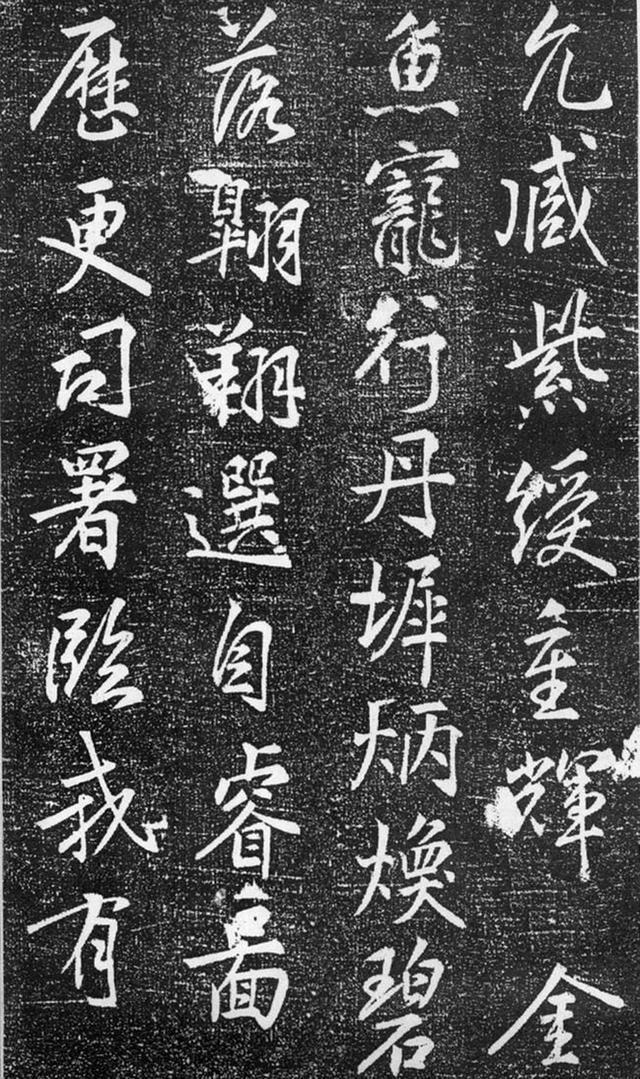 允臧紫綬重輝 金
魚寵行丹墀炳煥碧
落翱翔選自睿啚
歷更司署臨我有